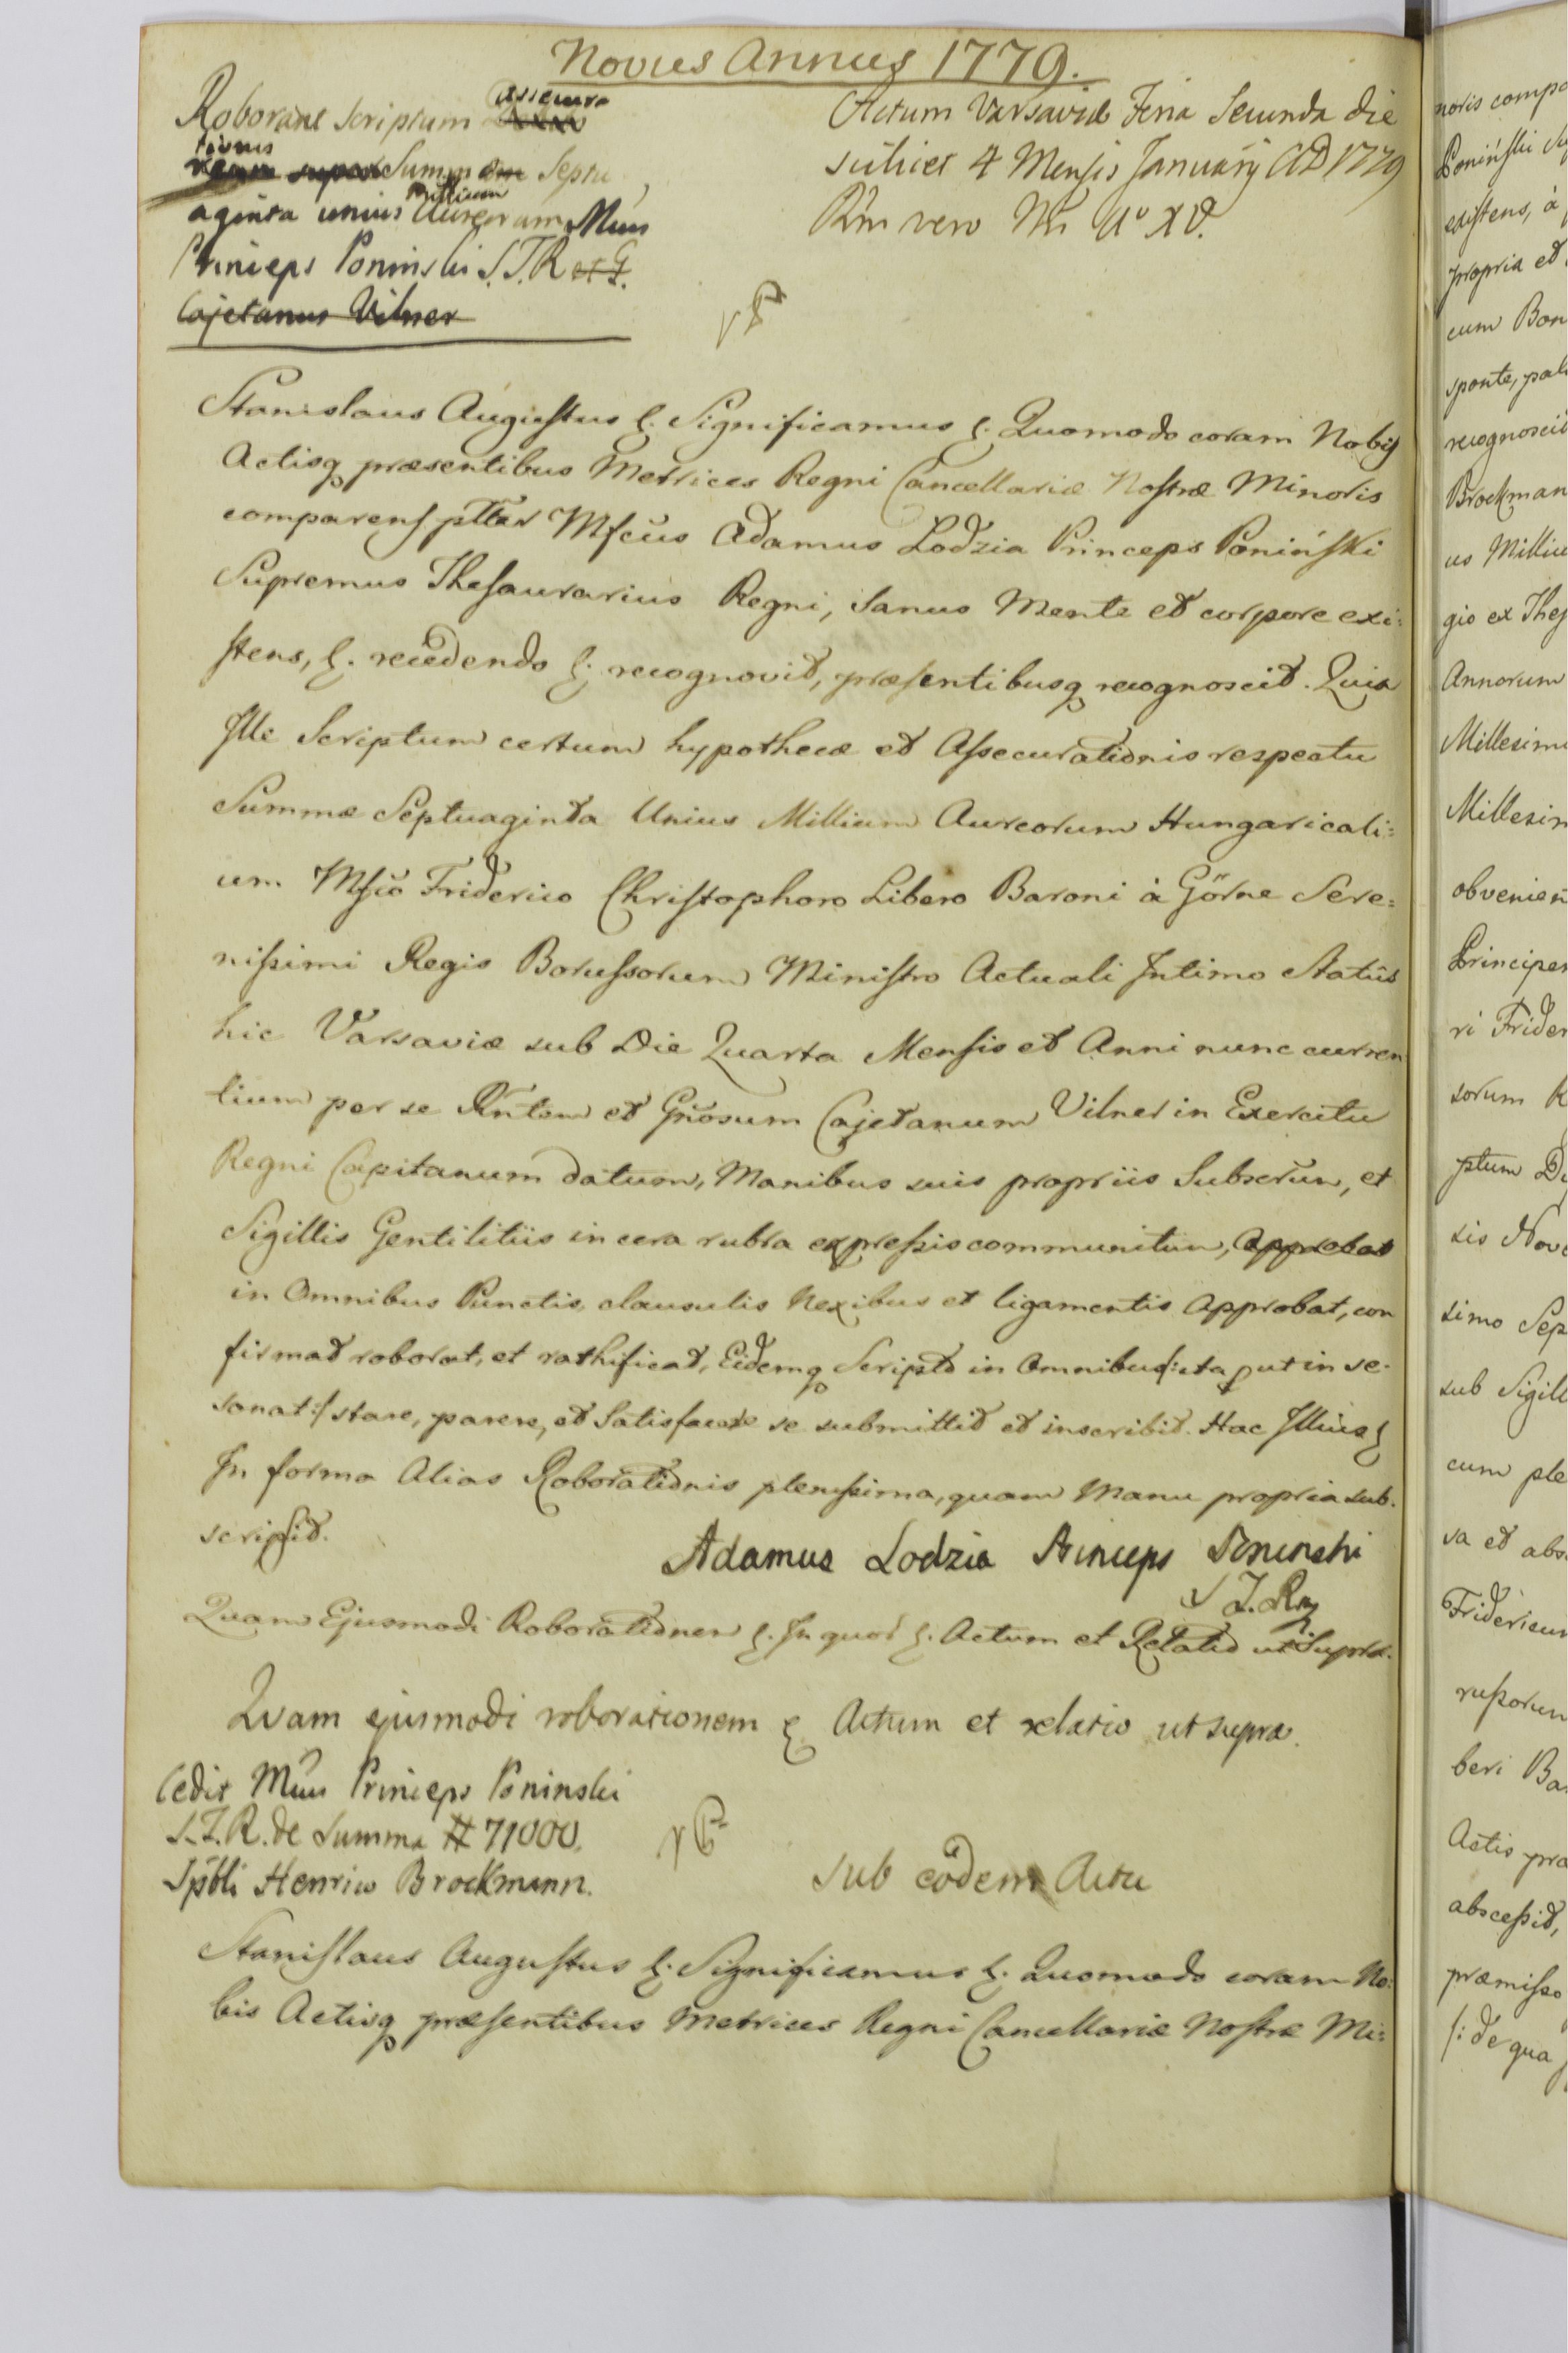 Novus Annus 1779.
Roborant Scriptum assecura
tionis Summæ Septu
aginta unius Millium Aureorum Mcus
Princeps Poninski S.T.R et G.
Cajetanus Vilner
Actum Varsaviæ Feria Secunda die
scilicet 4 Mensis January AD 1779
Rni vero Nri Ao XV.
Stanislaus Augustus &. Significamus &. Quomodo coram Nobis
Actisq præsentibus Metrices Regni Cancellariæ Nostræ Minoris
comparens Mfcus Adamus Lodzia Princeps Poniński
Supremus Thesaurarius Regni, sanus Mente et corpore exi=
stens, &. recedendo &. recognovit, præsentibusq recognoscit. Quia
Ille Scriptum certum hypothecæ et Assecurationis respectu
Summæ Septuaginta Unius Millium Aureorum Hungaricali=
um Mfco Friderico Christophoro Libero Baroni à Görne Sere=
nissimi Regis Borussorum Ministro Actuali Intimo Statûs
hic Varsaviæ sub Die Quarta Mensis et Anni nunc curren
tium per se Rntem et Gnosum Cajetanum Vilner in Exercitu
Regni Capitanum datum, Manibus suis propriis Subscrum, et
Sigillis Gentilitiis in cera rubra expressis communitum, Approbat
in Omnibus Punctis clausulis Nexibus et ligamentis Approbat, con
firmat roborat, et rathificat, Eidemq Scripto in Omnibus /:ita put in se
sonat:/ stare, parere, et Satisfacere se submittit et inscribit. Hac Illius &
In forma Alias Roborationis plenissima, quam Manu propria sub=
scripsit.
Adamus Lodzia Princeps Poninski
S T. R
Quam Ejusmodi Roborationem &. In quor &. Actum et Relatio ut Supra.
Quam ejusmodi roborationem & Actum et relatio ut supra.
Cedit Mcus Princeps Poninski
S.T.R. de Summa # 71000.
Spbli Henrico Brockmann.
Sub eôdem Actu
Stanislaus Augustus &. Significamus &. Quomodo coram No=
bis Actisq præsentibus Metrices Regni Cancellariæ Nostræ Mi=
noris compa
Poniński Su
existens, à
propria et
cum Bon
sponte, pal
recognoscit
Brockman
us Milliu
gio ex Thes
Annorum
Millesimi
Millesim
obvenien
Principem
ri Frider
sorum R
ptum D
sis Nove
simo Sep
sub Sigill
cum ple
sa et abs
Fridericum
russorum
beri Ba
Actis pra
abscessit,
præmisso
/: de qua